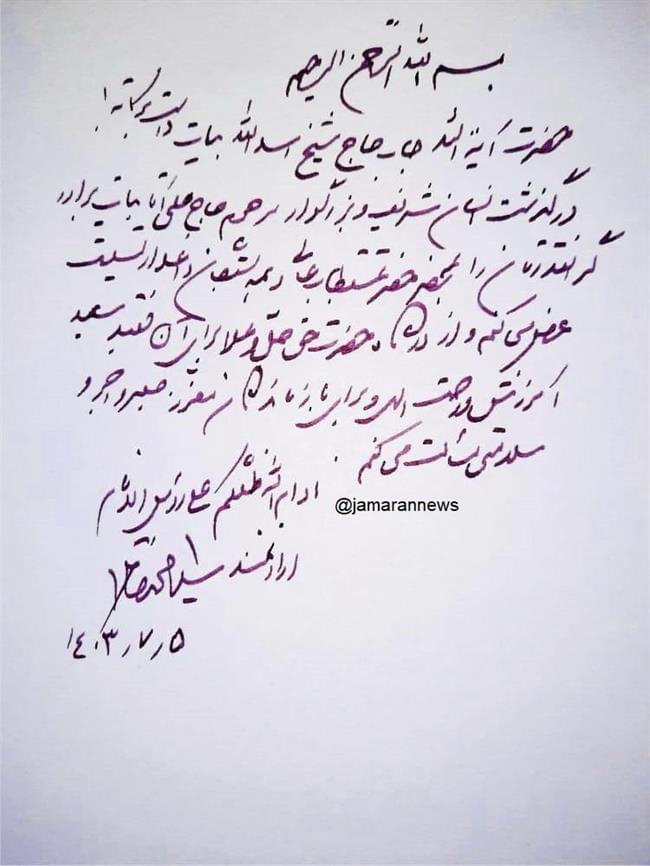 بسم الله الرحمن الرحیم
حضرت آیة الله جناب حاج شیخ اسدالله بیات دامت برکاته
درگذشت انسان شریف و بزرگوار مرحوم حاج علی آقا بیات برادر
گرانقدرتان را به محضر حضرت مستطاب عالی و همه بستگان داغدار تسلیت
عرض می کنم و از درگاه حضرت حق جل و علا برای آن فقید سعید
آمرزش و رحمت الهی و برای بازماندگان معزز صبر و اجر و
سلامتی مسألت می کنم.
ادام الله ظلکم علی رؤس الانام
@jamarannews
ارادتمند سید محمد خاتمی
۱٤۰۳٫۷٫۵